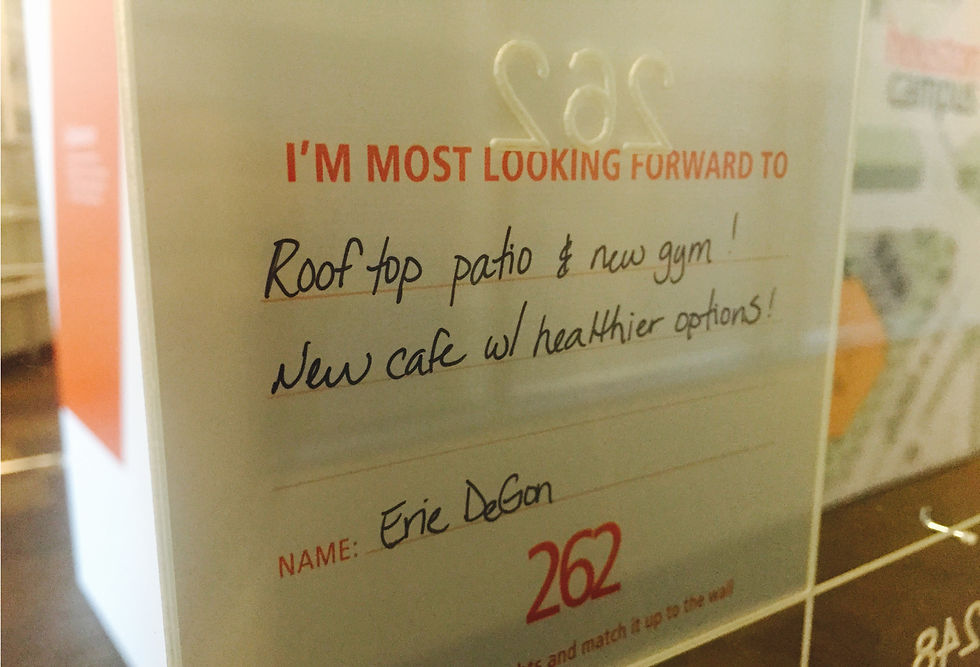 262
I'M MOST LOOKING FORWARD TO
Rooftop patio & new gym!
New cafe w/ healthier options!
NAME: Erie DeGon
262
and match it up to the wall
campus
248